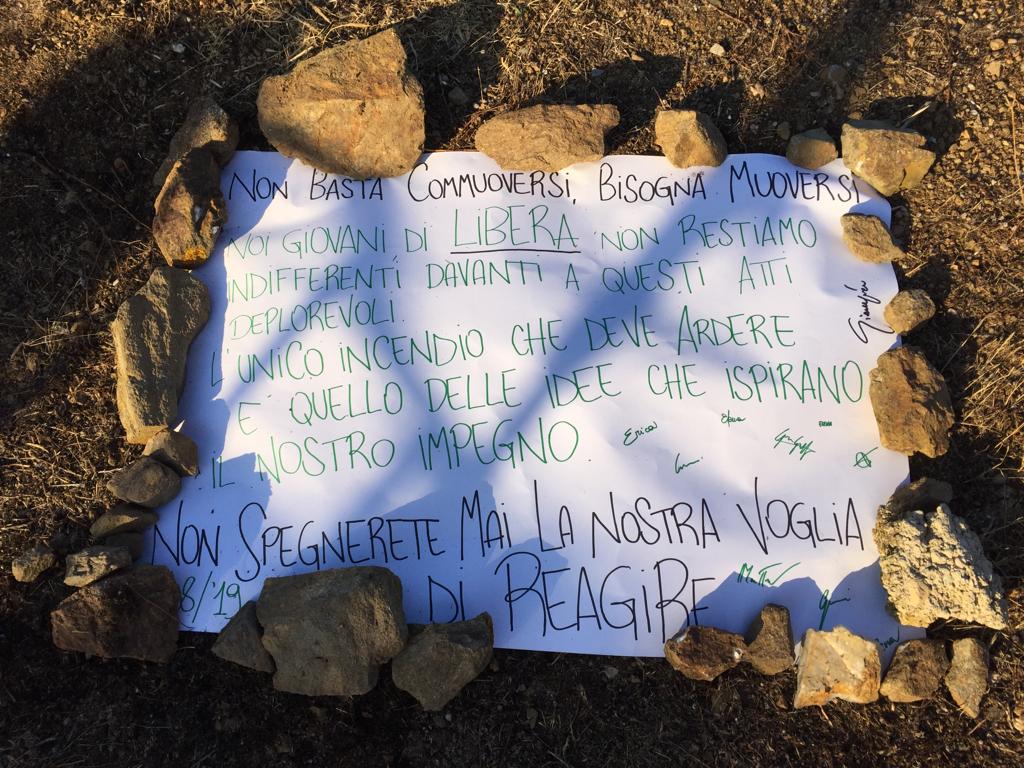 NON BASTA COMMUOVERSI, BISOGNA MUOVERSI
NOI GIOVANI DI LIBERA NON RESTIAMO
INDIFFERENTI DAVANTI A QUESTI ATTI
DEPLOREVOLI.
L'UNICO INCENDIO CHE DEVE ARDERE
E' QUELLO DELLE IDEE CHE ISPIRANO
IL NOSTRO IMPEGNO.
Erica
Elena
NON SPEGNERETE MAI LA NOSTRA VOGLIA
DI REAGIRE
8/'19